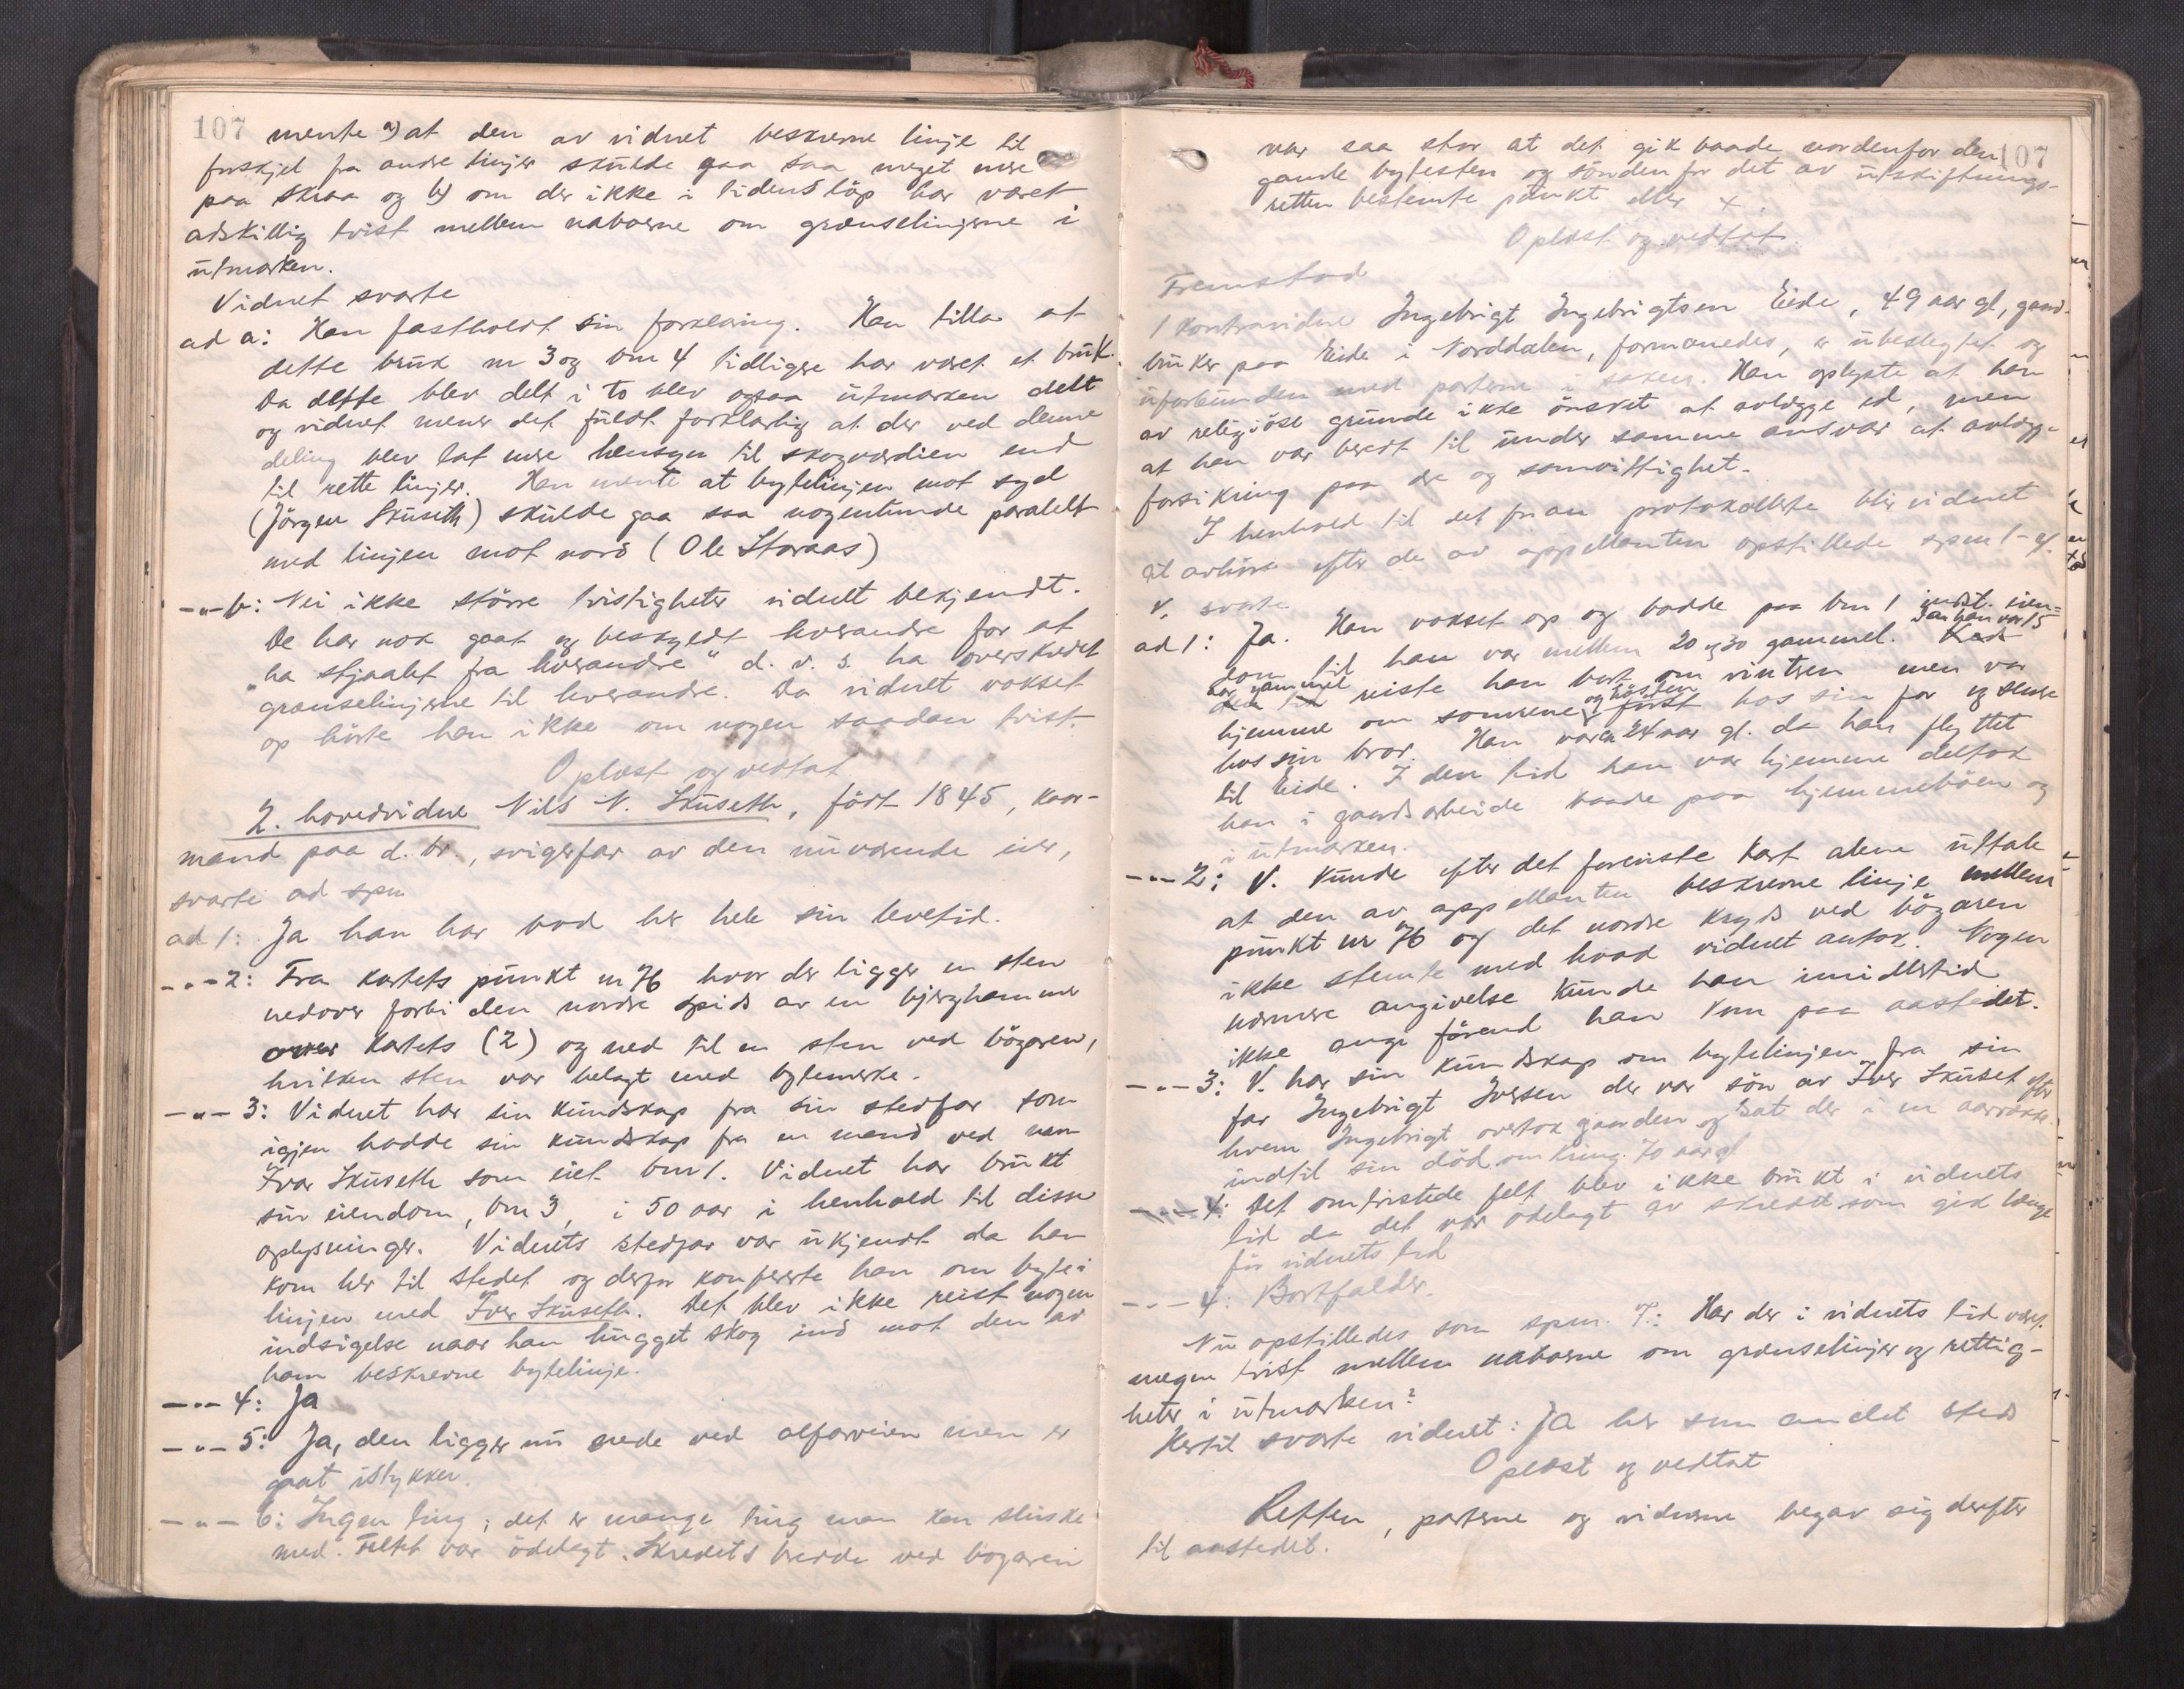 107
mente a) at den av vidnet beskrevne linje til
forskjel fra andre linjer skulde gaa saa meget mere
paa skraa og b) om der ikke i tidens løp har været
adskillig tvist mellem naboerne om grænselinjerne i
utmarken.
Vidnet svarte
ad a: Han fastholdt sin forklaring. Han tilla at
dette bruk nr 3 og bnr 4 tidligere har været et bruk.
Da dette blev delt i to blev ogsaa utmarken delt
og vidnet mener det fuldt forklarlig at der ved denne
deling blev tat mere hensyn til skogværdien end
til rette linjer. Han mente at bytelinjen mot syd
(Jørgen Skuseth) skulde gaa saa nogenlunde paralelt
med linjen mot nord (Ole Storaas)
-"- b: Nei ikke større tvistigheter vidnet bekjendt.
De har nok gaat og beskyldt hverandre for at
"ha stjaalet fra hverandre" d. v. s. ha overskredet
grænselinjerne til hverandre. Da vidnet vokset
op hørte han ikke om nogen saadan tvist.
Oplæst og vedtat
2. hovedvidne Nils N. Skuseth, født 1845, kaar-
mand paa d. br., svigerfar av den nuværende eier,
svarte ad spm
ad 1: Ja han har bod her hele sin levetid.
-"- 2: Fra kartets punkt nr 76 hvor der ligger en sten
nedover forbi den nordre spids av en bjerghammer
over kartets (2) og ned til en sten ved bøgaren,
hvilken sten var belagt med bytemerke.
-"- 3: Vidnet har sin kundskap fra sin stedfar som
igjen hadde sin kundskap fra en mand ved navn
Ivar Skuseth som eiet bnr 1. Vidnet har brukt
sin eiendom, bnr 3, i 50 aar i henhold til disse
oplysninger. Vidnets stedfar var ukjendt da han
kom her til stedet og derfor konfererte han om byte-
linjen med Iver Skuseth. Det blev ikke reist nogen
indsigelse naar han hugget skog ind mot den av
ham beskrevne bytelinje.
-"- 4: Ja
-"- 5: Ja, den ligger nu nede ved alfarveien men er
gaat istykker.
-"- 6: Ingen ting; det er mange ting man kan sluske
med. Feltet var ødelagt. Skredets bredde ved bøgaren
107
var saa stor at det gik baade nordenfor den
gamle bytesten og søndenfor det av utskiftnings-
retten bestemte punkt eller x.
Oplæst og vedtat.
Fremstod
1 kontravidne Ingebrigt Ingebrigtsen Eide, 49 aar gl, gaard-
bruker paa Eide i Norddalen, formanedes, er ubeslegtet og
uforbunden med parterne i saken. Han oplyste at han
av religiøse grunde ikke ønsket at avlægge ed, men
at han var beredt til under samme ansvar at avlægge
forsikring paa ære og samvittighet.
I henhold til det foran protokollerte blir vidnet
at avhøre efter de av appellanten opstillede spm 1-6.
V. svarte
ad 1: Ja. Han vokset op og bodde paa bnr 1 indst. eien-
dom til han var mellem 20 og 30 gammel. Da han var 15
aar gammel reiste han bort om vintren men var
hjemme om somrene og høsten hos sin far og senere
hos sin bror. Han var ca 24 aar gl. da han flyttet
til Eide. I den tid han var hjemme deltok
han i gaardsarbeide baade paa hjemmebøen og
i utmarken.
-"- 2: V. kunde efter det foreviste kart alene uttale
at den av appellanten beskrevne linje mellem
punkt nr 76 og det nordre kryds ved bøgaren
ikke stemte med hvad vidnet antok. Nogen
nærmere angivelse kunde han imidlertid
ikke angi førend han kom paa aastedet.
-"- 3: V. har sin kundskap om bytelinjen fra sin
far Ingebrigt Iversen der var søn av Iver Skuset efter
hvem Ingebrigt overtok gaarden og sat der i en aarrække
indtil sin død omkring 70 aar gl
-"- 4: Det omtvistede felt blev ikke brukt i vidnets
tid da det var ødelagt av skredet som gik længe
før vidnets tid
-"- 4: Bortfalder.
Nu opstilledes som spm. 7: Har der i vidnets tid været
megen tvist mellem naboerne om grænselinjer og rettig-
heter i utmarken?
Hertil svarte vidnet: Ja her som andet steds
Oplæst og vedtat
Retten, parterne og vidnerne begav sig derefter
til aastedet.